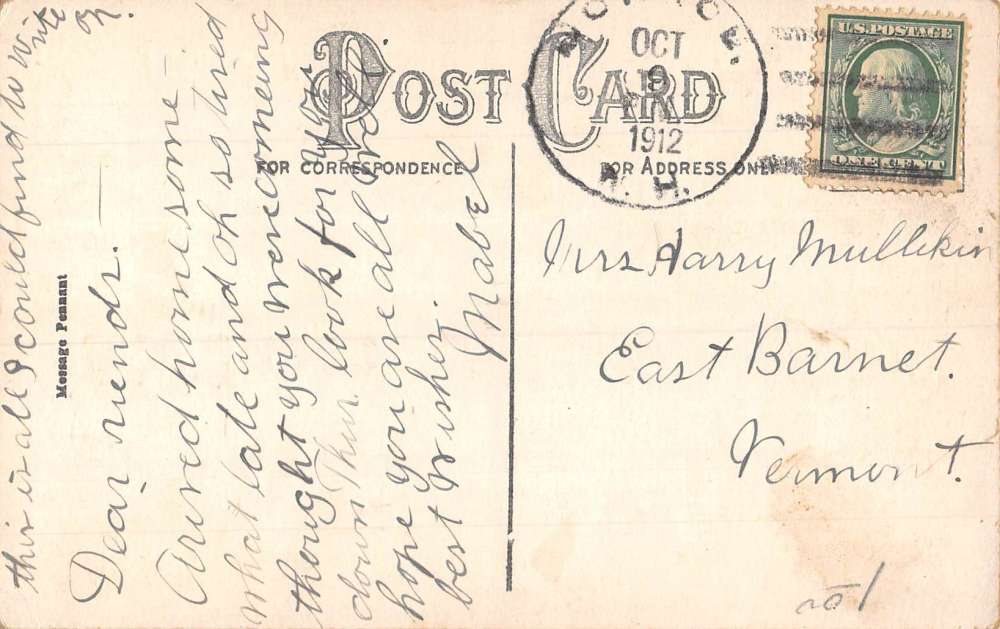 POST CARD
FOR CORRESPONDENCE
FOR ADDRESS ONLY
OCT
9
1912
N. H.
U.S. POSTAGE
ONE CENT
Message Pennant
this is all I could find to write
on
Dear
Arived home some-
what late and oh so tired
thought you were comeing
down Thur. look for you
hope you are all
best wishes.
Mabel
Mrs Harry Mullikin
East Barnet.
Vermont.